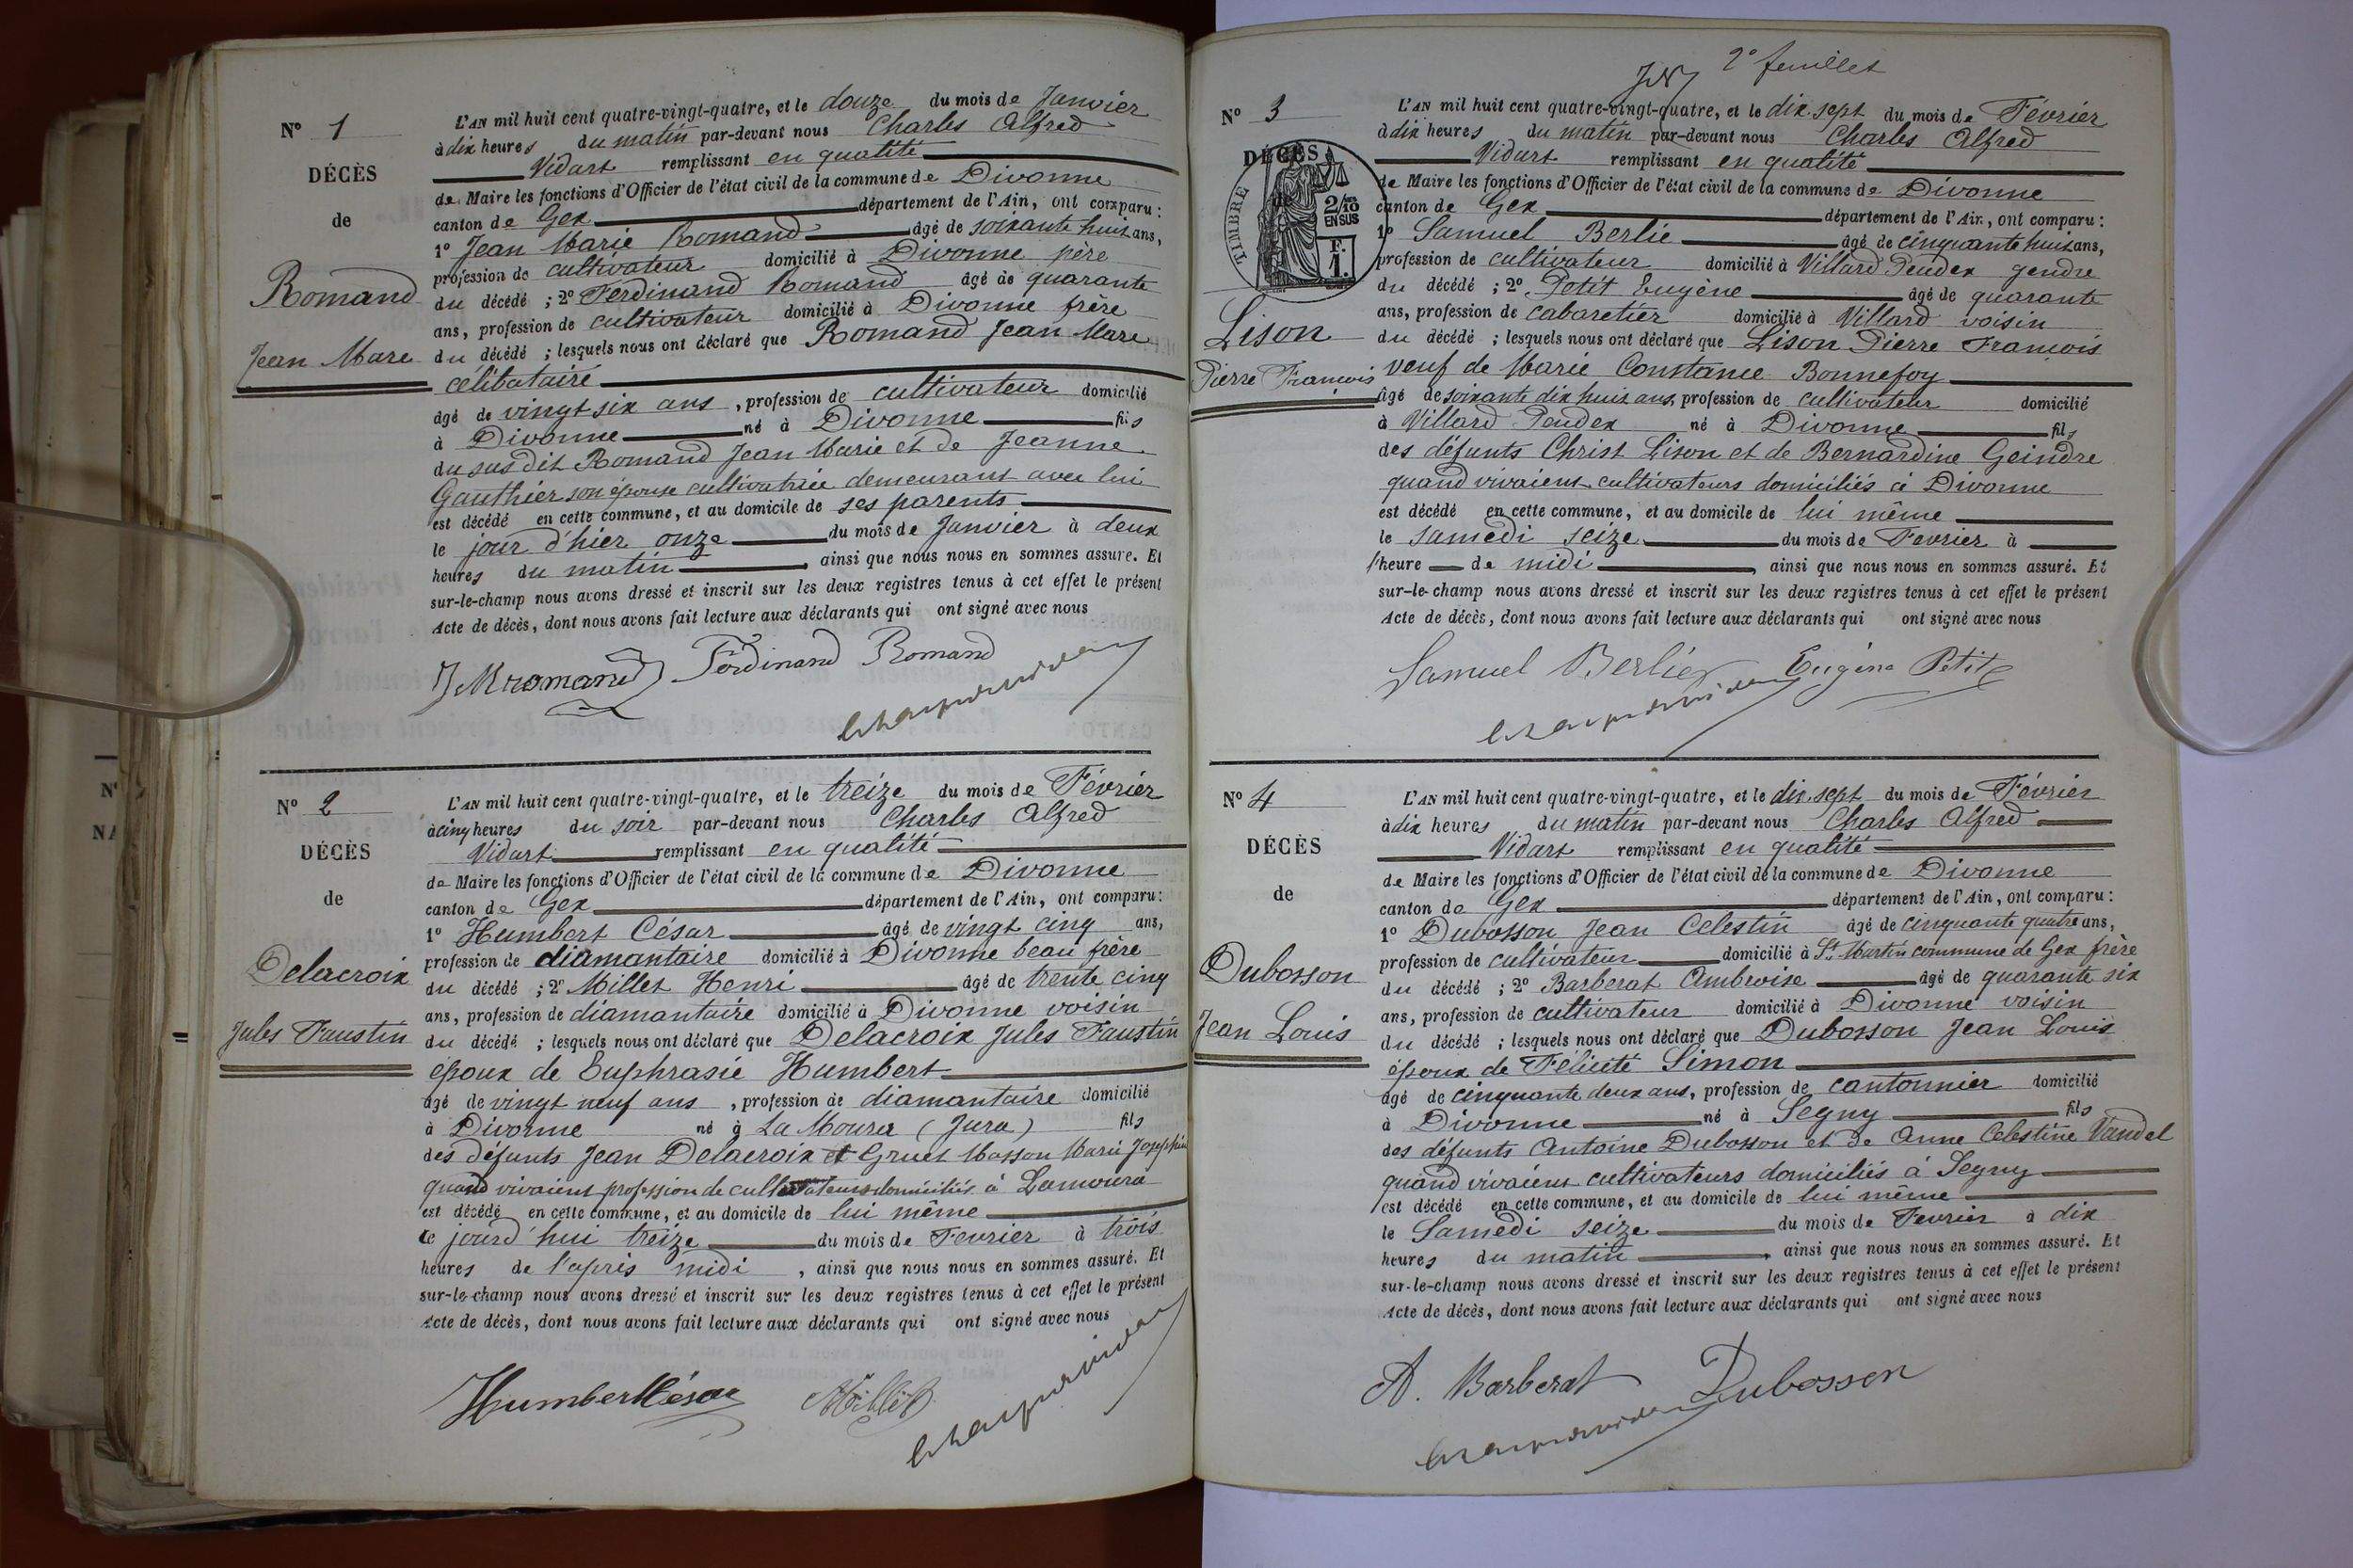 N° 1
DÉCÈS
de
Romand
Jean Marc
L'AN mil huit cent quatre-vingt-quatre, et le douze du mois de Janvier
à dix heures du matin par-devant nous Charles Alfred
Vidart remplissant en qualité
de Maire les fonctions d'Officier de l'état civil de la commune de Divonne
canton de Gex département de l'Ain, ont comparu :
1° Jean Marie Romand âgé de soixante huit ans,
profession de cultivateur domicilié à Divonne père
du décédé ; 2° Ferdinand Romand âgé de quarante
ans, profession de cultivateur domicilié à Divonne frère
du décédé ; lesquels nous ont déclaré que Romand Jean Marc
célibataire
âgé de vingt six ans , profession de cultivateur domicilié
à Divonne né à Divonne fils
du sus dit Romand Jean Marie et de Jeanne
Gauthier son épouse cultivatrice demeurant avec lui
est décédé en cette commune, et au domicile de ses parents
le jour d'hier onze du mois de Janvier à deux
heures du matin , ainsi que nous nous en sommes assuré. Et
sur-le-champ nous avons dressé et inscrit sur les deux registres tenus à cet effet le présent
Acte de décès, dont nous avons fait lecture aux déclarants qui ont signé avec nous
JMromand Ferdinand Romand
N° 2
DÉCÈS
de
Delacroix
Jules Faustin
L'AN mil huit cent quatre-vingt-quatre, et le treize du mois de Février
à cinq heures du soir par-devant nous Charles Alfred
Vidart remplissant en qualité
de Maire les fonctions d'Officier de l'état civil de la commune de Divonne
canton de Gex département de l'Ain, ont comparu :
1° Humbert César âgé de vingt cinq ans,
profession de diamantaire domicilié à Divonne beau frère
du décédé ; 2° Millet Henri âgé de trente cinq
ans, profession de diamantaire domicilié à Divonne voisin
du décédé ; lesquels nous ont déclaré que Delacroix Jules Faustin
époux de Euphrasie Humbert
âgé de vingt neuf ans , profession de diamantaire domicilié
à Divonne né à La Moura (Jura) fils
des défunts Jean Delacroix et Gruet Masson Marie Josephine
quand vivaient profession de cultivateurs domiciliés à Lamoura
est décédé en cette commune, et au domicile de lui même
le jourd'hui treize du mois de Fevrier à trois
heures de l'après midi , ainsi que nous nous en sommes assuré. Et
sur-le-champ nous avons dressé et inscrit sur les deux registres tenus à cet effet le présent
Acte de décès, dont nous avons fait lecture aux déclarants qui ont signé avec nous
Humbert César Millet
2° feuillet
N° 3
DÉCÈS
de
TIMBRE
2/10
EN SUS
F.
1.
Lison
Pierre François
L'AN mil huit cent quatre-vingt-quatre, et le dix sept du mois de Février
à dix heures du matin par-devant nous Charles Alfred
Vidart remplissant en qualité
de Maire les fonctions d'Officier de l'état civil de la commune de Divonne
canton de Gex département de l'Ain, ont comparu :
1° Samuel Berlie âgé de cinquante huit ans,
profession de cultivateur domicilié à Villard Pendex gendre
du décédé ; 2° Petit Eugène âgé de quarante
ans, profession de cabaretier domicilié à Villard voisin
du décédé ; lesquels nous ont déclaré que Lison Pierre François
veuf de Marie Constance Bonnefoy
âgé de soixante dix huit ans, profession de cultivateur domicilié
à Villard Pendex né à Divonne fils
des défunts Christ Lison et de Bernardine Geindre
quand vivaient cultivateurs domiciliés à Divonne
est décédé en cette commune, et au domicile de lui même
le samedi seize du mois de Fevrier à
l'heure de midi , ainsi que nous nous en sommes assuré. Et
sur-le-champ nous avons dressé et inscrit sur les deux registres tenus à cet effet le présent
Acte de décès, dont nous avons fait lecture aux déclarants qui ont signé avec nous
Samuel Berlie Eugène Petit
N° 4
DÉCÈS
de
Dubosson
Jean Louis
L'AN mil huit cent quatre-vingt-quatre, et le dix sept du mois de Février
à dix heures du matin par-devant nous Charles Alfred
Vidart remplissant en qualité
de Maire les fonctions d'Officier de l'état civil de la commune de Divonne
canton de Gex département de l'Ain, ont comparu :
1° Dubosson Jean Celestin âgé de cinquante quatre ans,
profession de cultivateur domicilié à St Martin commune de Gex frère
du décédé ; 2° Barberat Ambroise âgé de quarante six
ans, profession de cultivateur domicilié à Divonne voisin
du décédé ; lesquels nous ont déclaré que Dubosson Jean Louis
époux de Félicité Simon
âgé de cinquante deux ans, profession de cantonnier domicilié
à Divonne né à Segny fils
des défunts Antoine Dubosson et de Anne Celestine Vandel
quand vivaient cultivateurs domiciliés à Segny
est décédé en cette commune, et au domicile de lui même
le Samedi seize du mois de Fevrier à dix
heures du matin , ainsi que nous nous en sommes assuré. Et
sur-le-champ nous avons dressé et inscrit sur les deux registres tenus à cet effet le présent
Acte de décès, dont nous avons fait lecture aux déclarants qui ont signé avec nous
A. Barberat Dubosson